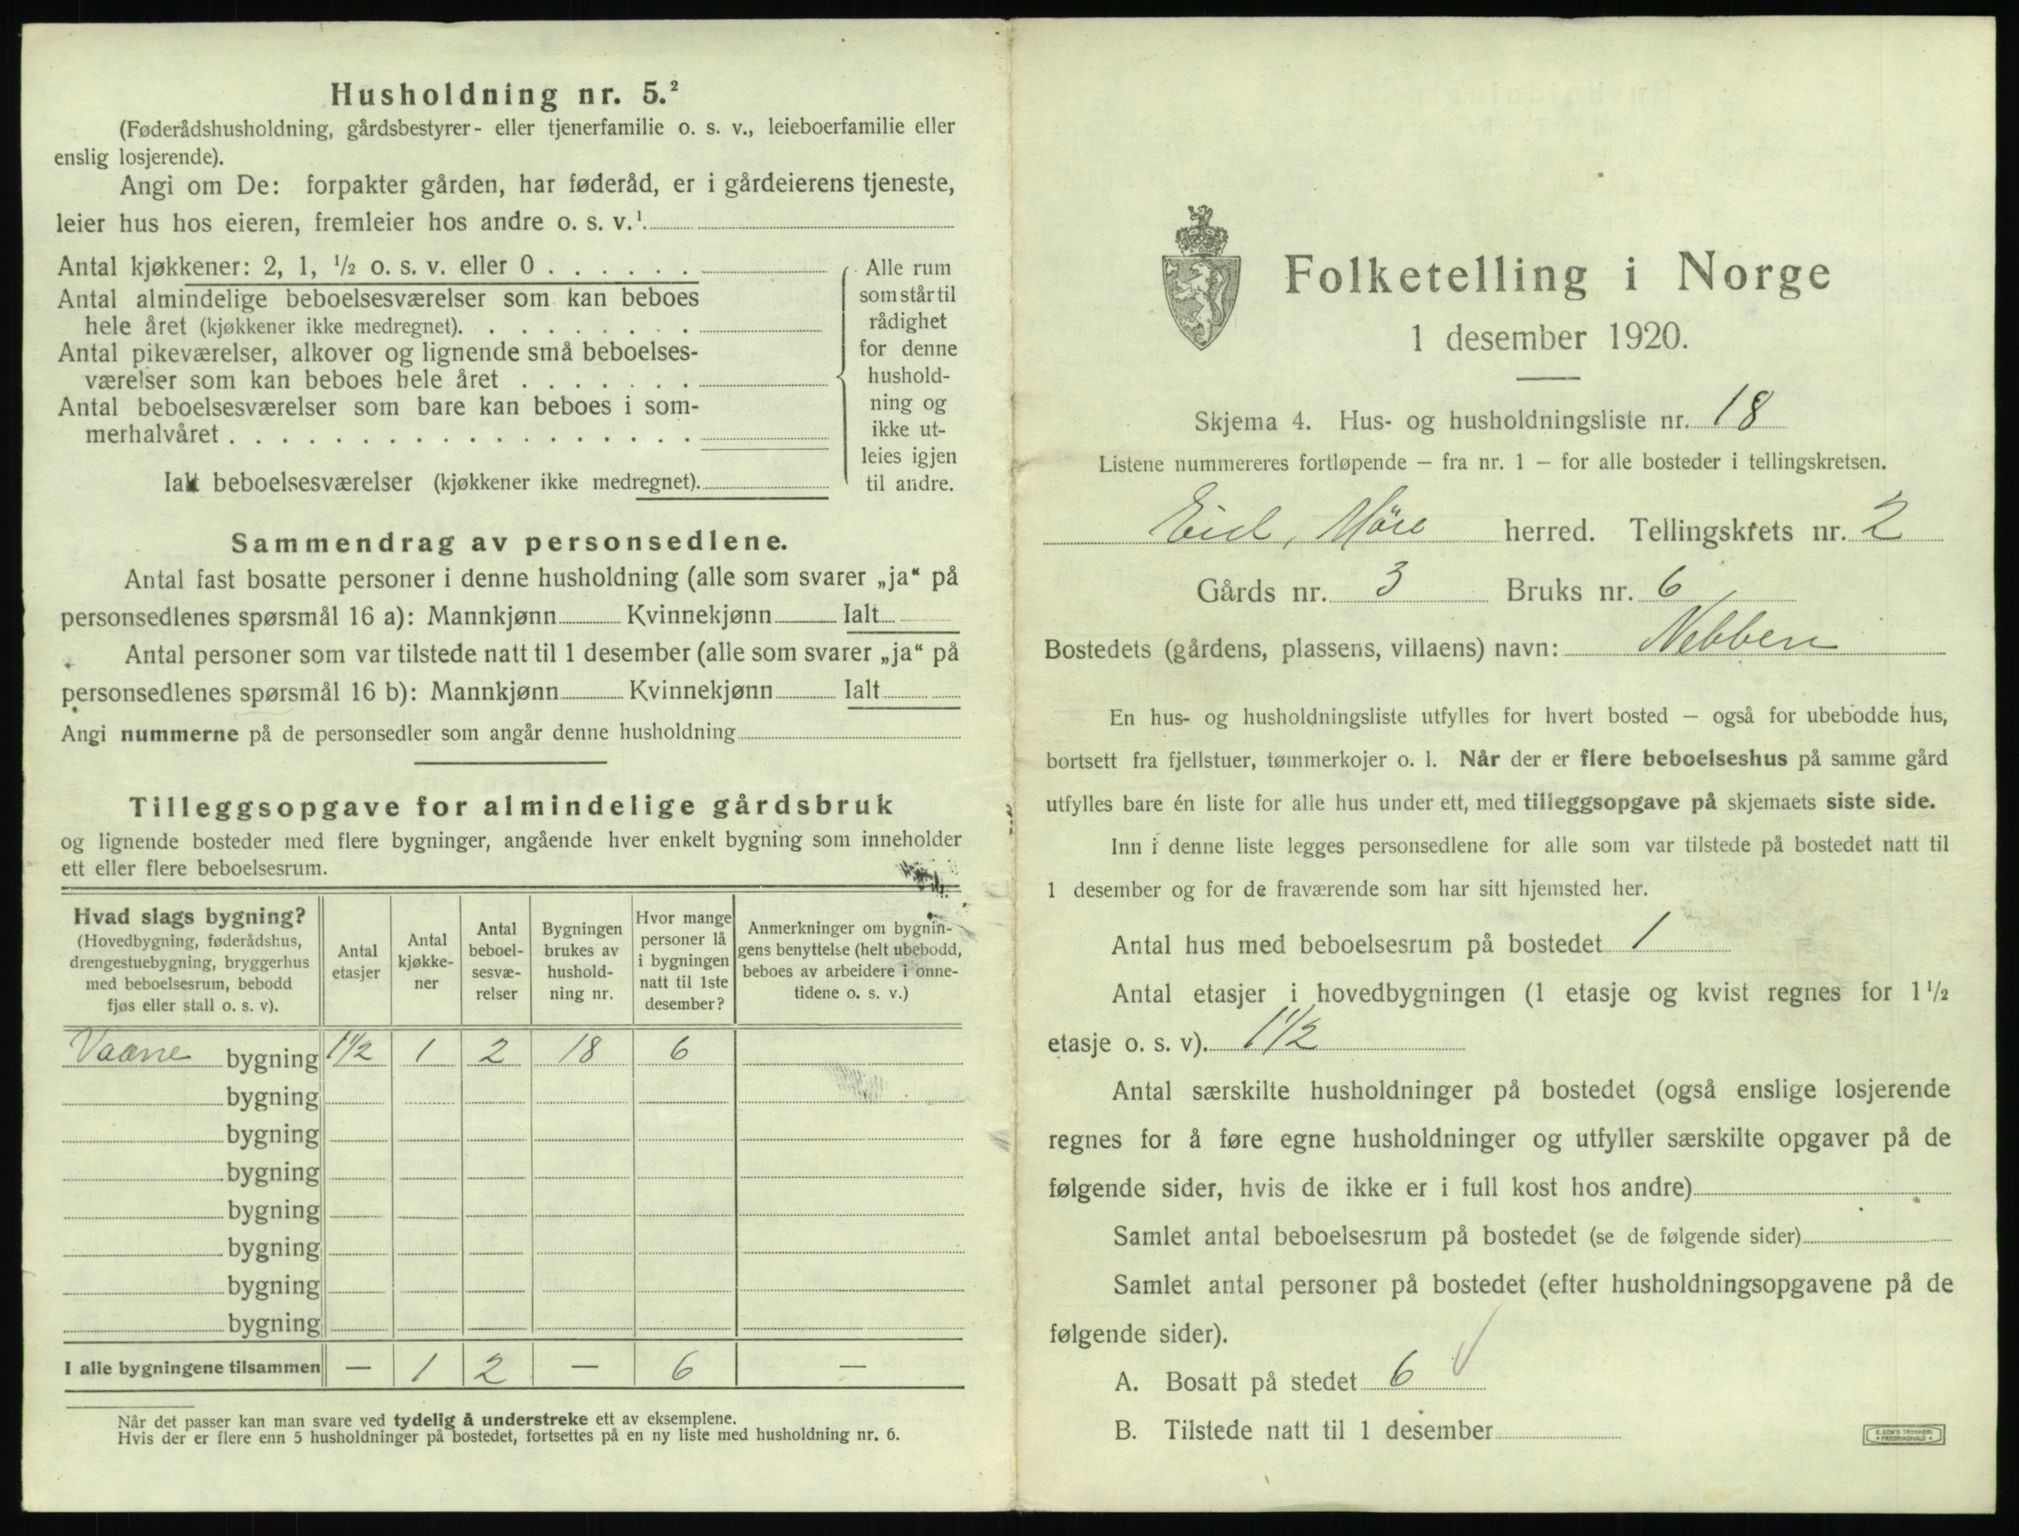 Husholdning nr. 5.²
(Føderådshusholdning, gårdsbestyrer- eller tjenerfamilie o. s. v., leieboerfamilie eller
enslig losjerende).
Angi om De: forpakter gården, har føderåd, er i gårdeierens tjeneste,
leier hus hos eieren, fremleier hos andre o. s. v.¹
Antal kjøkkener: 2, 1, ½ o. s. v. eller 0 . . . . . .
Antal almindelige beboelsesværelser som kan beboes
hele året (kjøkkener ikke medregnet). . . . . . . . .
Antal pikeværelser, alkover og lignende små beboelses-
værelser som kan beboes hele året . . . . . . .
Antal beboelsesværelser som bare kan beboes i som-
merhalvåret . . . . . . . . . . . . . . . . . .
Ialt beboelsesværelser (kjøkkener ikke medregnet).
Alle rum
som står til
rådighet
for denne
hushold-
ning og
ikke ut-
leies igjen
til andre.
Sammendrag av personsedlene.
Antal fast bosatte personer i denne husholdning (alle som svarer „ja“ på
personsedlenes spørsmål 16 a): Mannkjønn Kvinnekjønn Ialt
Antal personer som var tilstede natt til 1 desember (alle som svarer „ja“ på
personsedlenes spørsmål 16 b): Mannkjønn Kvinnekjønn Ialt
Angi nummerne på de personsedler som angår denne husholdning
Tilleggsopgave for almindelige gårdsbruk
og lignende bosteder med flere bygninger, angående hver enkelt bygning som inneholder
ett eller flere beboelsesrum.
Hvad slags bygning?
(Hovedbygning, føderådshus,
drengestuebygning, bryggerhus
med beboelsesrum, bebodd
fjøs eller stall o. s. v).
Antal
etasjer
Antal
kjøkke-
ner
Antal
beboel-
sesvæ-
relser
Bygningen
brukes av
hushold-
ning nr.
Hvor mange
personer lå
i bygningen
natt til 1ste
desember?
Anmerkninger om bygnin-
gens benyttelse (helt ubebodd,
beboes av arbeidere i onne-
tidene o. s. v.)
Vaane bygning 1½ 1 2 18 6
bygning
bygning
bygning
bygning
bygning
bygning
bygning
I alle bygningene tilsammen — 1 2 — 6 —
Når det passer kan man svare ved tydelig å understreke ett av eksemplene.
Hvis der er flere enn 5 husholdninger på bostedet, fortsettes på en ny liste med husholdning nr. 6.
Folketelling i Norge
1 desember 1920.
Skjema 4. Hus- og husholdningsliste nr. 18
Listene nummereres fortløpende — fra nr. 1 — for alle bosteder i tellingskretsen.
Eid, Möre herred. Tellingskrets nr. 2
Gårds nr. 3 Bruks nr. 6
Bostedets (gårdens, plassens, villaens) navn: Nebben
En hus- og husholdningsliste utfylles for hvert bosted — også for ubebodde hus,
bortsett fra fjellstuer, tømmerkojer o. l. Når der er flere beboelseshus på samme gård
utfylles bare én liste for alle hus under ett, med tilleggsopgave på skjemaets siste side.
Inn i denne liste legges personsedlene for alle som var tilstede på bostedet natt til
1 desember og for de fraværende som har sitt hjemsted her.
Antal hus med beboelsesrum på bostedet 1
Antal etasjer i hovedbygningen (1 etasje og kvist regnes for 1½
etasje o. s. v). 1½
Antal særskilte husholdninger på bostedet (også enslige losjerende
regnes for å føre egne husholdninger og utfyller særskilte opgaver på de
følgende sider, hvis de ikke er i full kost hos andre)
Samlet antal beboelsesrum på bostedet (se de følgende sider)
Samlet antal personer på bostedet (efter husholdningsopgavene på de
følgende sider).
A. Bosatt på stedet 6
B. Tilstede natt til 1 desember
E. SEM'S TRYKKERI
FREDRIKSHALD